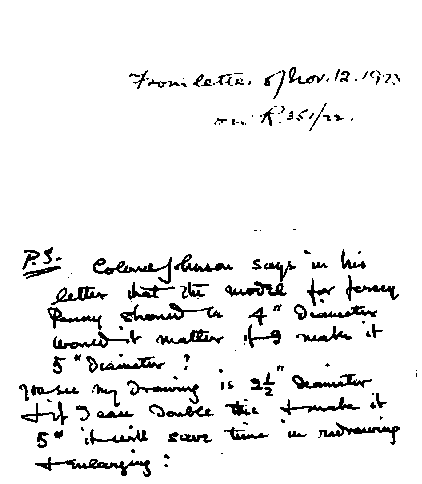 From letter of Nov. 12. 1923
on R 351/22.
P.S. Colonel Johnson says in his
letter that the model for Jersey
Penny should be 4" Diameter
would it matter if I make it
5" Diameter ?
You see my Drawing is 2½" Diameter
& if I can double this & make it
5" it will save time in redrawing
& enlarging :